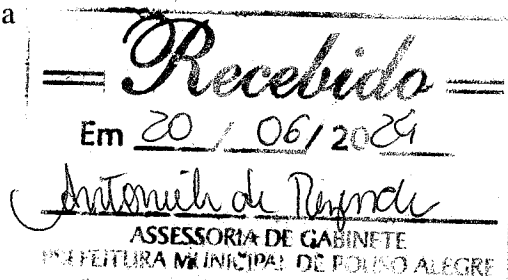 a
Recebido
Em 20 / 06 / 2024
de Rezende
ASSESSORIA DE GABINETE
PREFEITURA MUNICIPAL DE POUSO ALEGRE